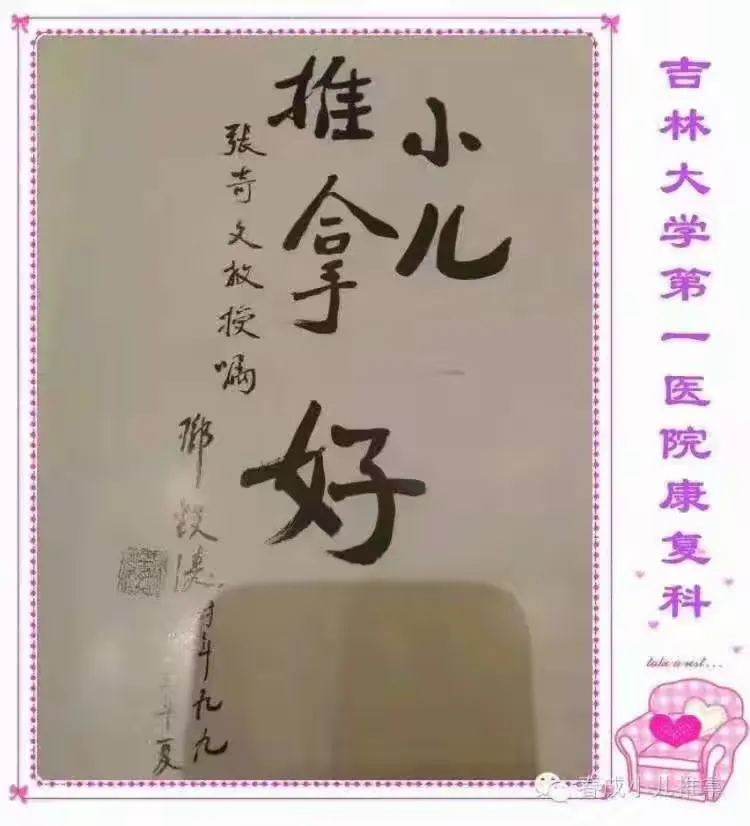 小儿
推拿
好
张奇文教授嘱
时年九九
夏
吉林大学第一医院康复科
take a rest...
春成小儿推拿